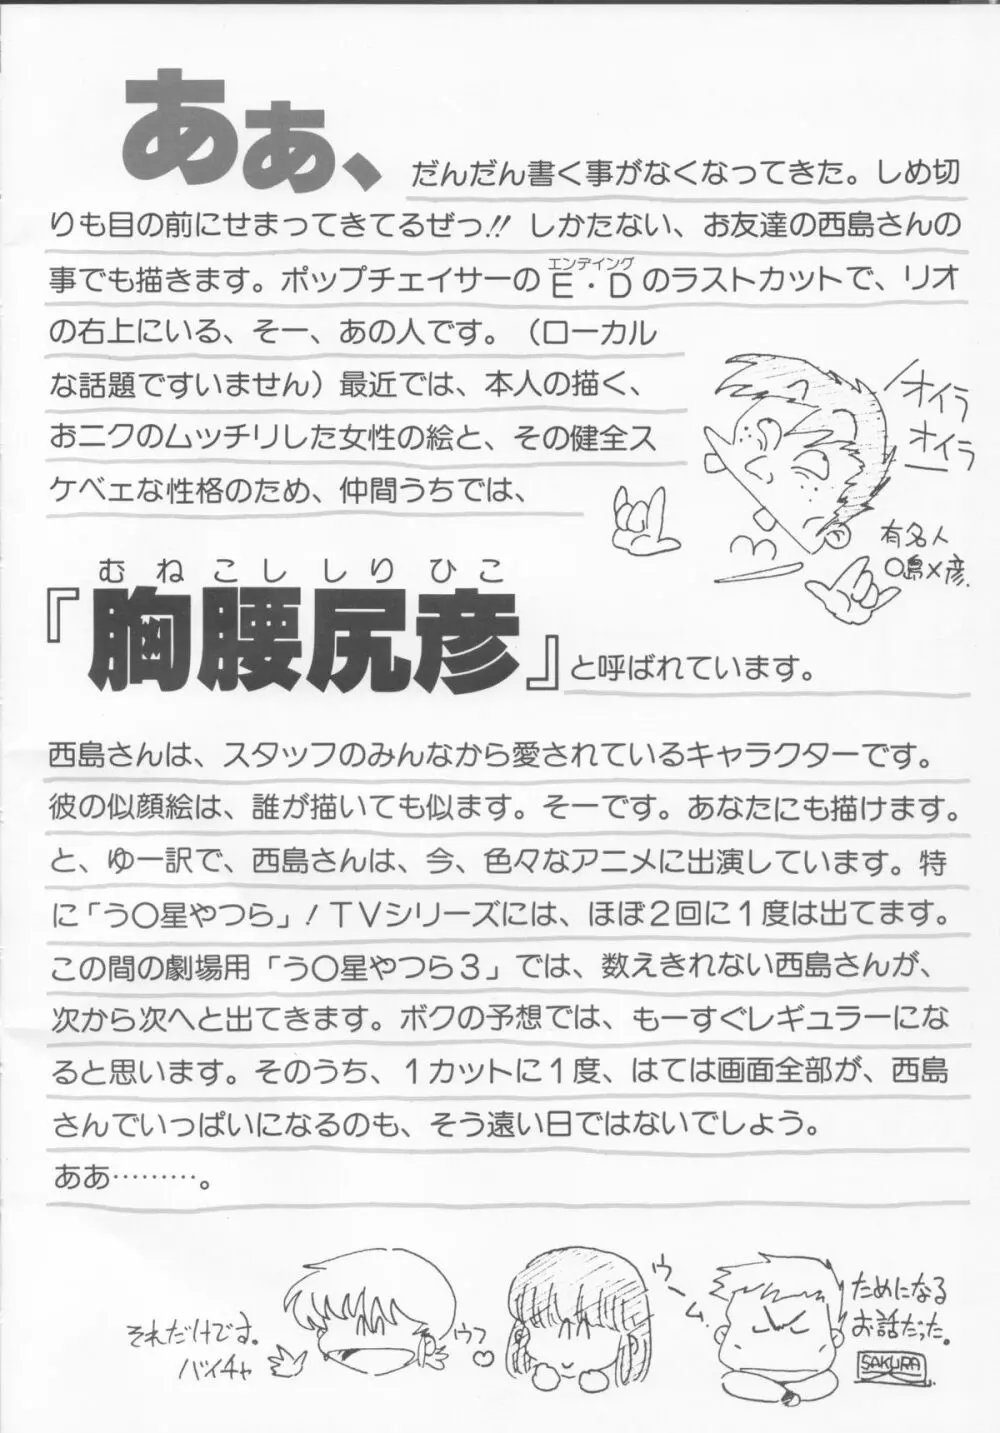 あぁ、
だんだん書く事がなくなってきた。しめ切
りも目の前にせまってきてるぜっ!! しかたない、お友達の西島さんの
エンデイング
事でも描きます。ポップチェイサーのE・Dのラストカットで、リオ
の右上にいる、そー、あの人です。（ローカル
な話題ですいません）最近では、本人の描く、
おニクのムッチリした女性の絵と、その健全ス
ケベェな性格のため、仲間うちでは、
オイラ
オイラ
有名人
〇島×彦.
むねこししりひこ
『胸腰尻彦』と呼ばれています。
西島さんは、スタッフのみんなから愛されているキャラクターです。
彼の似顔絵は、誰が描いても似ます。そーです。あなたにも描けます。
と、ゆー訳で、西島さんは、今、色々なアニメに出演しています。特
に「う〇星やつら」！TVシリーズには、ほぼ2回に1度は出てます。
この間の劇場用「う〇星やつら3」では、数えきれない西島さんが、
次から次へと出てきます。ボクの予想では、もーすぐレギュラーにな
ると思います。そのうち、1カットに1度、はては画面全部が、西島
さんでいっぱいになるのも、そう遠い日ではないでしょう。
ああ………。
それだけです。
バイチャ
ウフ
ウーム.
ためになる
お話だった。
SAKURA